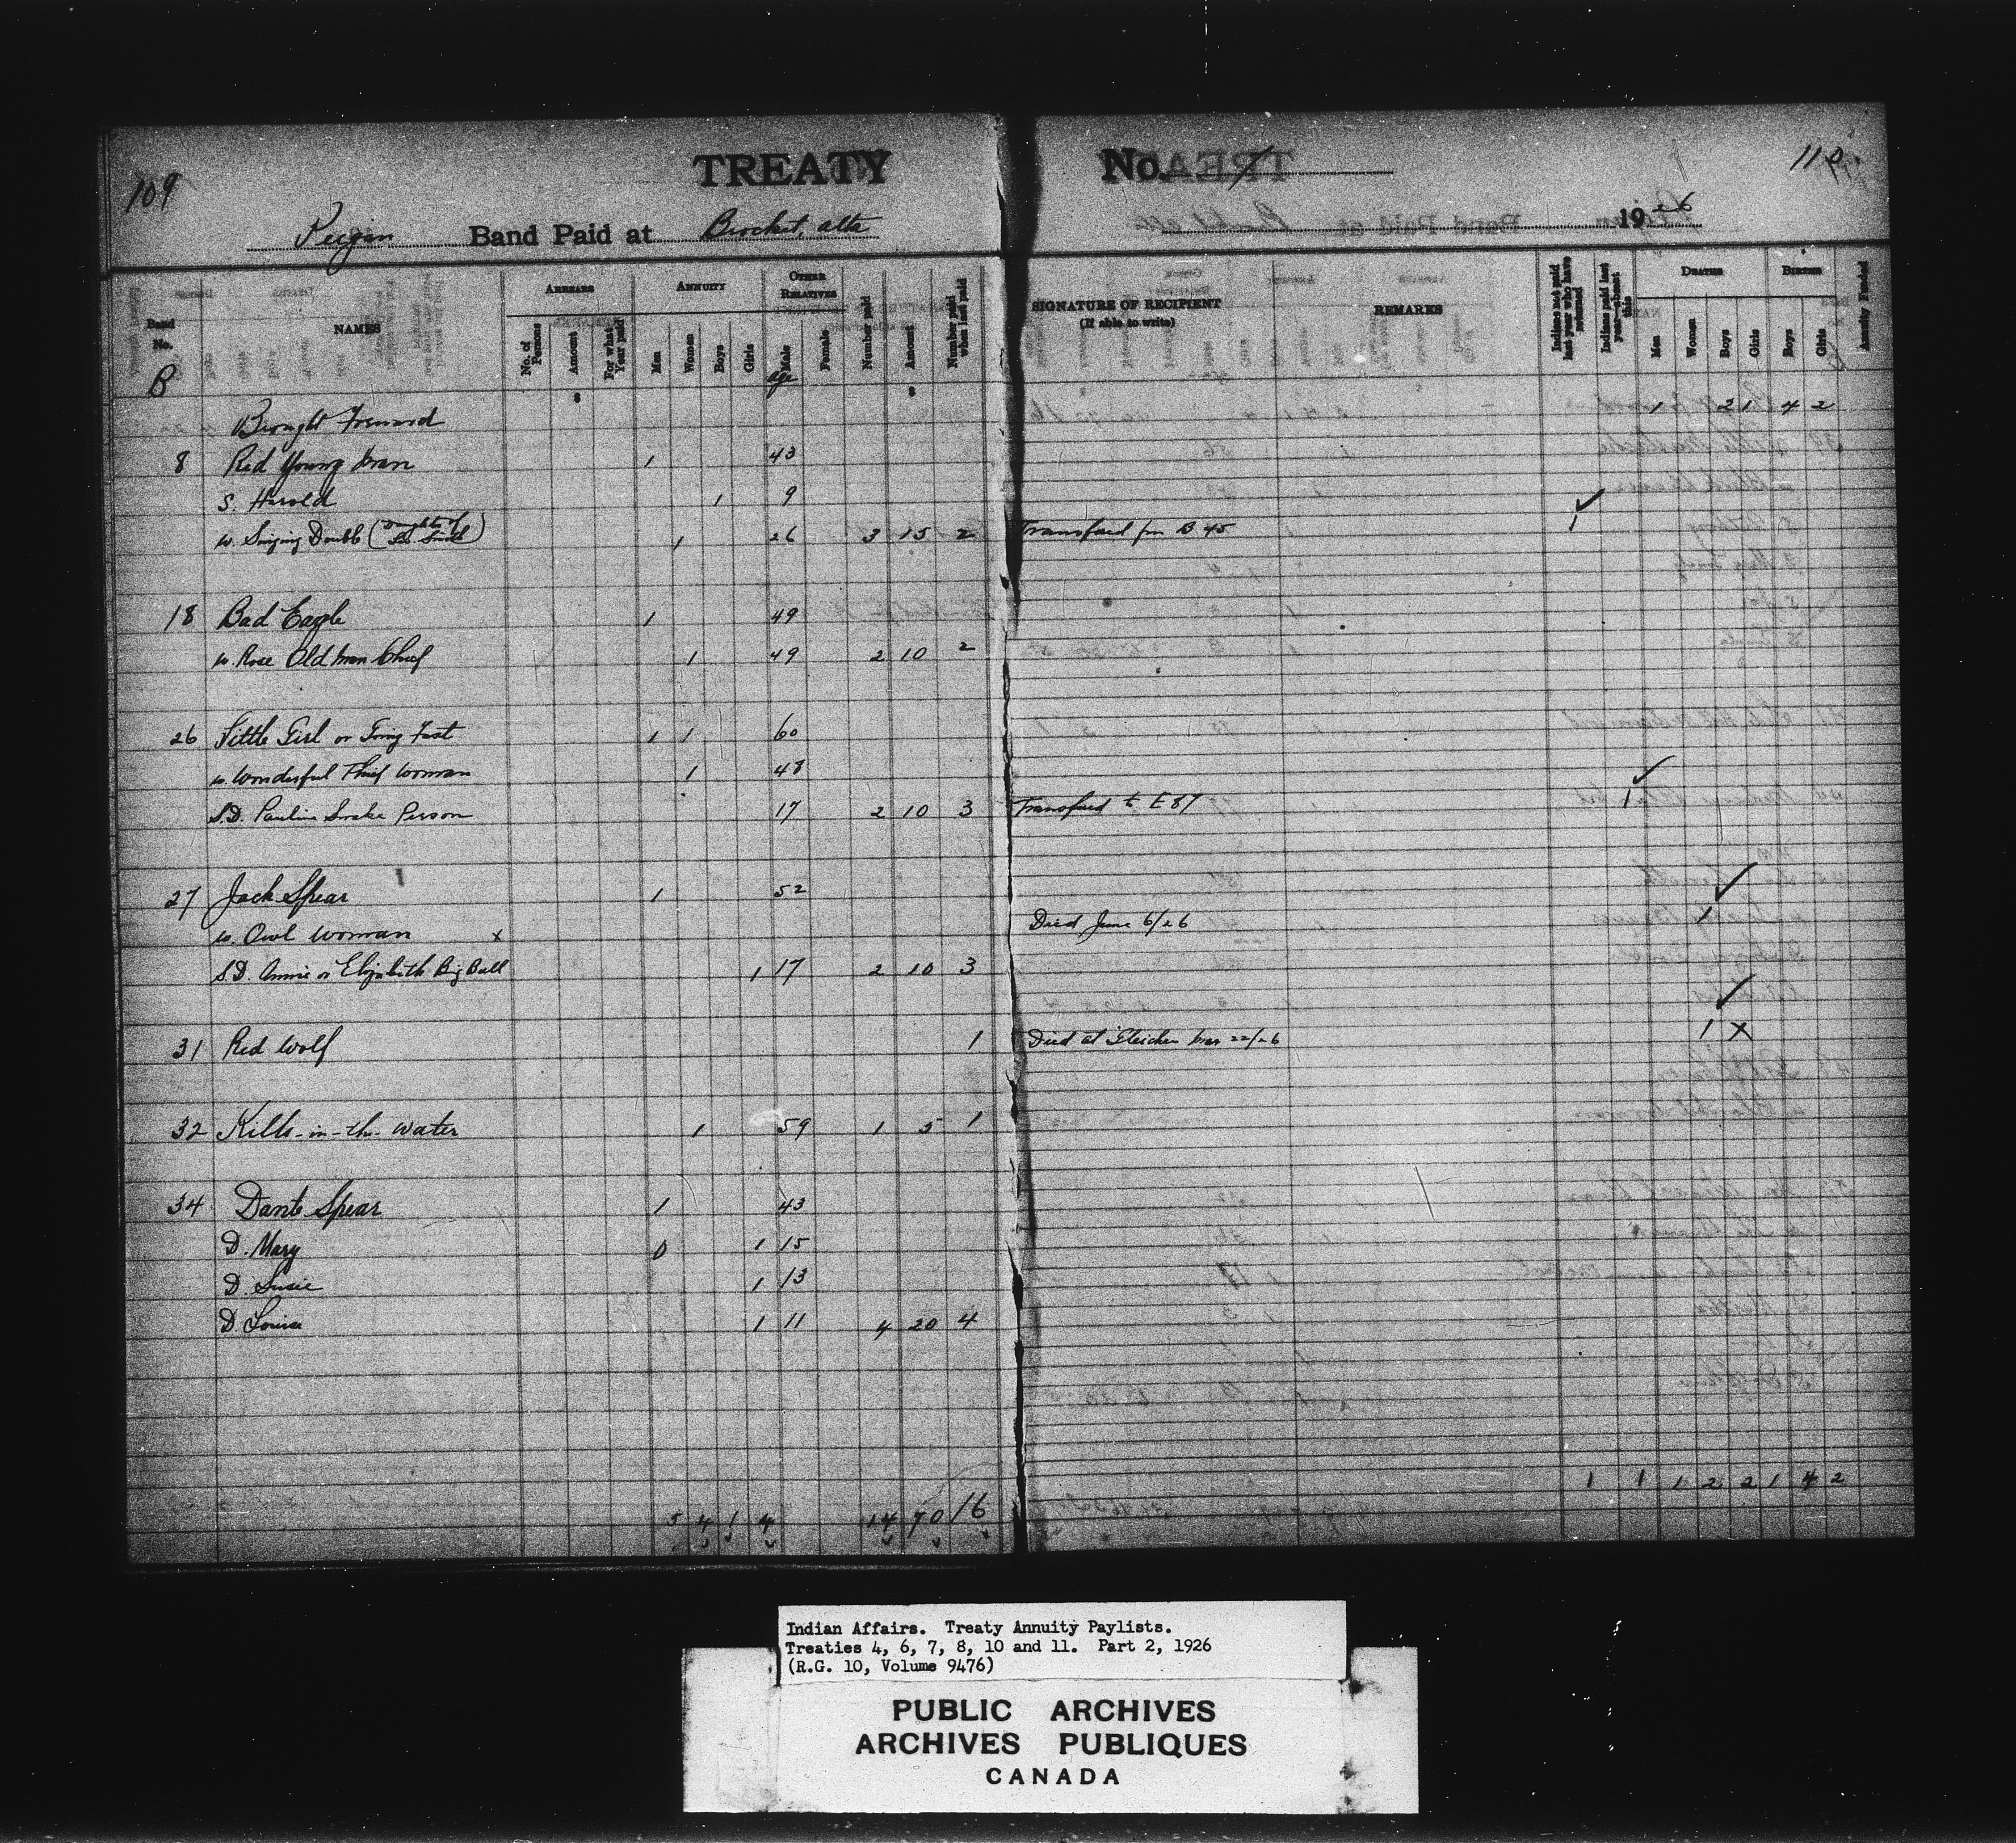 109 TREATY No. 7 110
Peigan Band Paid at Brocket, Alta 1926
Band No. NAMES ARREARS ANNUITY OTHER RELATIVES Number paid Amount Number paid when last paid SIGNATURE OF RECIPIENT (If able to write) REMARKS Indians not paid last year who have returned Indians paid last year—absent this DEATHS BIRTHS Annuity Funded
No. of Persons Amount For what Year paid Men Women Boys Girls Male Female Men Women Boys Girls Boys Girls
B $ age $
Brought Forward 1 2 1 4 2
8 Red Young Man 1 43
S. Harold 1 9
w. Singing Double (Daughter of Smith) 1 26 3 15 2 Transferd fm B 45 1
18 Bad Eagle 1 49
w. Rose Old Man Chief 1 49 2 10 2
26 Little Girl or Going Fast 1 1 60
w. Wonderful Thief Woman 1 48
S.D. Pauline Snake Person 17 2 10 3 Transferd to E 87 1
27 Jack Spear 1 52
w. Owl Woman x Died June 6/26 1
S.D. Annie or Elizabeth Big Bull 1 17 2 10 3
31 Red Wolf 1 Died at Gleichen Mar 22/26 1 X
32 Kills-in-the-Water 1 59 1 5 1
34 Dante Spear 1 43
D. Mary 0 1 15
D. Susie 1 13
D. Louise 1 11 4 20 4
1 1 1 2 2 1 4 2
5 4 1 4 14 70 16
Indian Affairs. Treaty Annuity Paylists.
Treaties 4, 6, 7, 8, 10 and 11. Part 2, 1926
(R.G. 10, Volume 9476)
PUBLIC ARCHIVES
ARCHIVES PUBLIQUES
CANADA